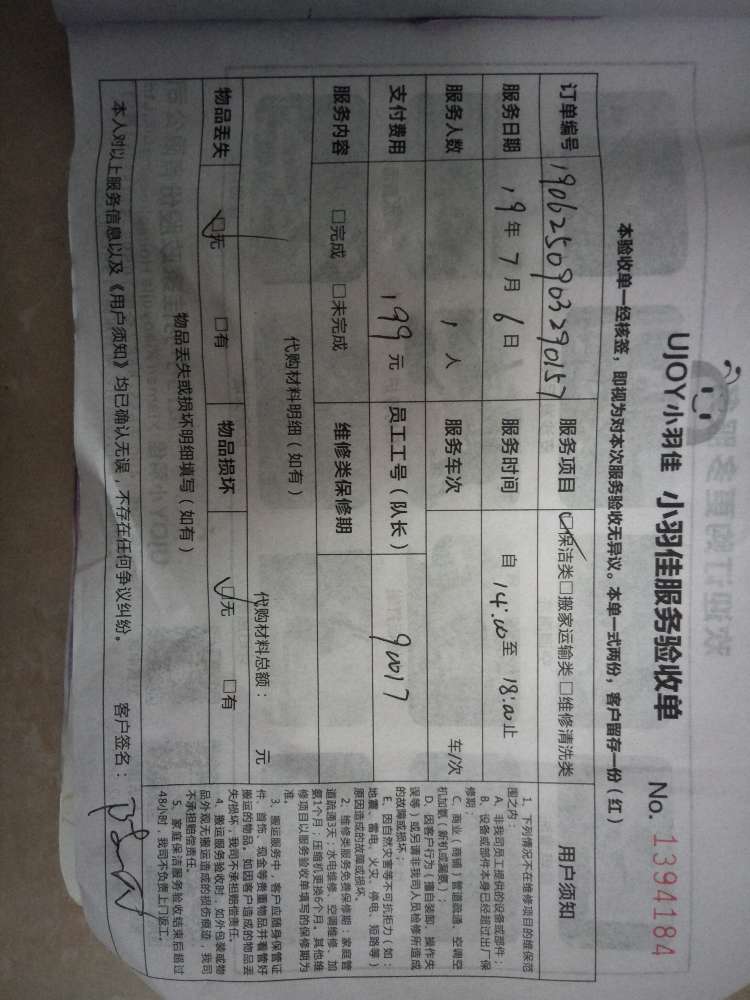 UJOY小羽佳 小羽佳服务验收单 No. 1394184
本验收单一经核签，即视为对本次服务验收无异议。本单一式两份，客户留存一份（红）
订单编号 1906250903290157 服务项目 ☑保洁类□搬家运输类□维修清洗类
服务日期 19年7月6日 服务时间 自 14:00至 18:00止
服务人数 1 人 服务车次 车/次
支付费用 199 元 员工工号（队长） 90017
服务内容 □完成 □未完成 维修类保修期
代购材料明细（如有） 代购材料总额： 元
物品丢失 ☑无 □有 物品损坏 ☑无 □有
物品丢失或损坏明细填写（如有）
本人对以上服务信息以及《用户须知》均已确认无误，不存在任何争议纠纷。 客户签名：
用户须知
1、下列情况不在维修项目的维保范
围之内：
A、非我司员工提供的设备或部件；
B、设备或部件本身已经超过出厂保
修期；
C、商业（商铺）管道疏通、空调空
机加氨（新机或漏氨）；
D、因客户行为（擅自装卸、操作失
误等）或另请非我司人员检修所造成
的故障或损坏；
E、因自然灾害等不可抗拒力（如：
地震、雷电、火灾、停电、短路等）
原因造成的故障或损坏。
2、维修类服务免费保修期：家庭管
道疏通3天；水电维修、空调维修、加
氨1个月；压缩机更换6个月。其他维
修项目以服务验收单填写的保修期为
准。
3、搬运服务中，客户应随身保管证
件、首饰、现金等贵重物品并看管好
搬运的物品。如因客户造成的物品丢
失/损坏，我司不承担赔偿责任。
4、搬运服务验收时，如外包装或物
品外观无搬运造成的损伤痕迹，我司
不承担赔偿责任。
5、家庭保洁服务验收结束后超过
48小时，我司不负责上门返工。